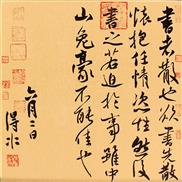 書者散也欲書先散
懷抱任情恣性然後
書之若迫於事雖中
山兔豪不能佳也
六月二日